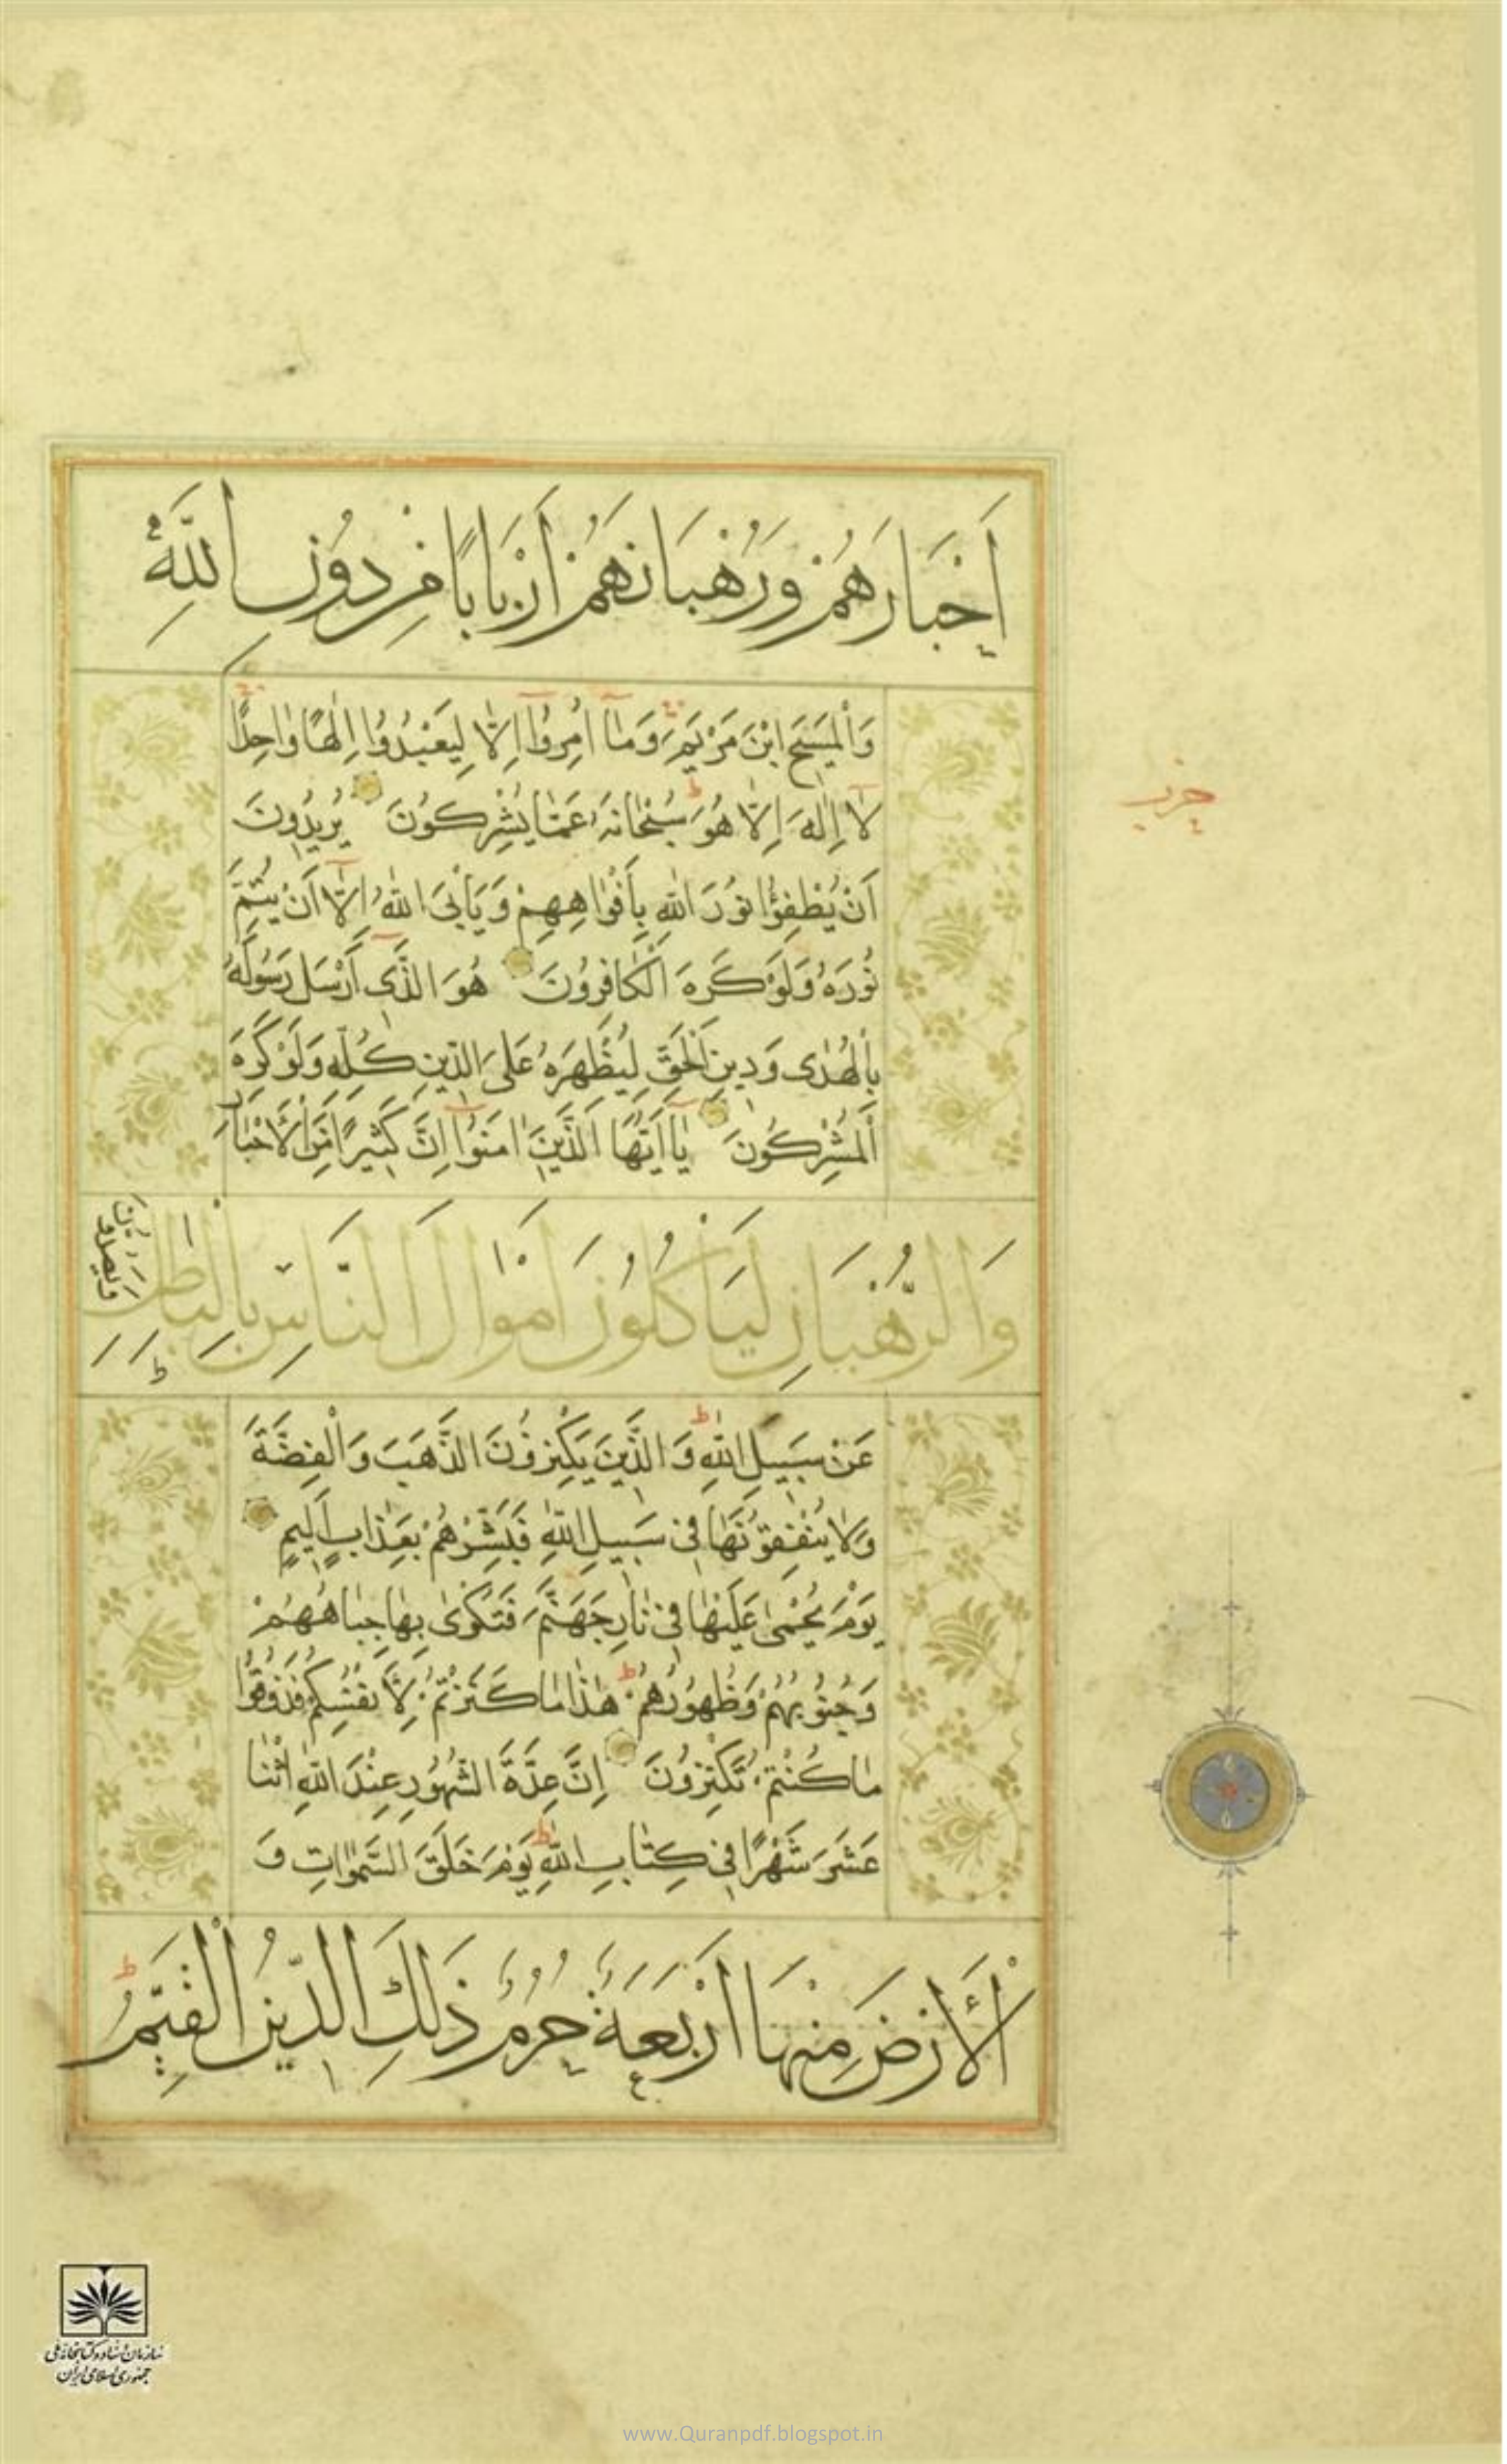 أَحْبَارَهُمْ وَرُهْبَانَهُمْ أَرْبَابًا مِنْ دُونِ اللَّهِ
وَالْمَسِيحَ ابْنَ مَرْيَمَ وَمَآ أُمِرُوٓا إِلَّا لِيَعْبُدُوا إِلٰهًا وَاحِدًا
لَآ إِلٰهَ إِلَّا هُوَ سُبْحَانَهُ عَمَّا يُشْرِكُونَ يُرِيدُونَ
أَنْ يُطْفِؤُا نُورَ اللهِ بِأَفْوَاهِهِمْ وَيَأْبَى اللهُ إِلَّآ أَنْ يُتِمَّ
نُورَهُ وَلَوْ كَرِهَ الْكَافِرُونَ هُوَ الَّذِىٓ أَرْسَلَ رَسُولَهُ
بِالْهُدٰى وَدِينِ الْحَقِّ لِيُظْهِرَهُ عَلَى الدِّينِ كُلِّهِ وَلَوْ كَرِهَ
الْمُشْرِكُونَ يَآ أَيُّهَا الَّذِينَ اٰمَنُوٓا إِنَّ كَثِيرًا مِنَ الْأَحْبَارِ
وَالرُّهْبَانِ لَيَأْكُلُونَ أَمْوَالَ النَّاسِ بِالْبَاطِلِ وَيَصُدُّونَ
عَنْ سَبِيلِ اللهِ وَالَّذِينَ يَكْنِزُونَ الذَّهَبَ وَالْفِضَّةَ
وَلَا يُنْفِقُونَهَا فِى سَبِيلِ اللهِ فَبَشِّرْهُمْ بِعَذَابٍ أَلِيمٍ
يَوْمَ يُحْمٰى عَلَيْهَا فِى نَارِ جَهَنَّمَ فَتُكْوٰى بِهَا جِبَاهُهُمْ
وَجُنُوبُهُمْ وَظُهُورُهُمْ هٰذَا مَا كَنَزْتُمْ لِأَنْفُسِكُمْ فَذُوقُوا
مَا كُنْتُمْ تَكْنِزُونَ إِنَّ عِدَّةَ الشُّهُورِ عِنْدَ اللهِ اثْنَا
عَشَرَ شَهْرًا فِى كِتَابِ اللهِ يَوْمَ خَلَقَ السَّمٰوَاتِ وَ
الْأَرْضَ مِنْهَا أَرْبَعَةٌ حُرُمٌ ذَلِكَ الدِّينُ الْقَيِّمُ
حزب
سازمان اسناد و کتابخانه ملی
جمهوری اسلامی ایران
www.Quranpdf.blogspot.in